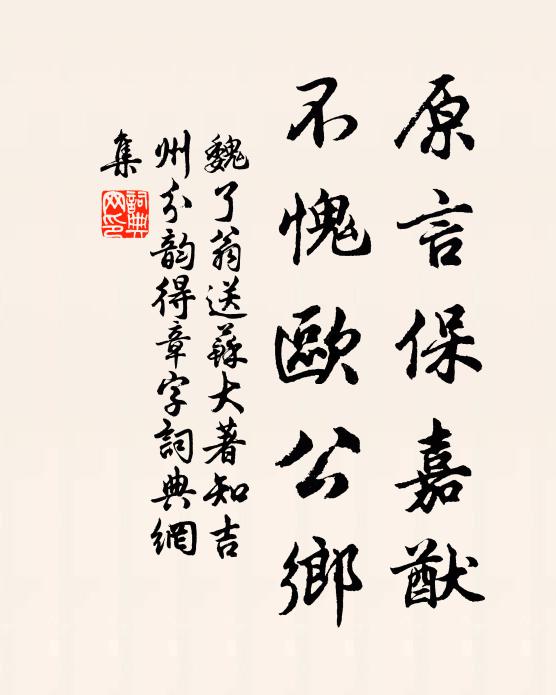 原言保嘉猷
不愧歐公鄉
魏了翁送蘇大著知吉
州分韵得章字詞典網
集
詞典
网印